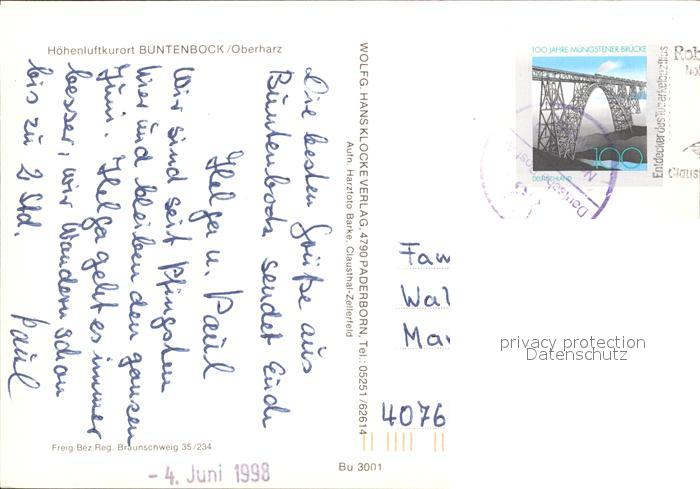 Höhenluftkurort BUNTENBOCK/Oberharz
Die besten Grüße aus
Buntenbock sendet Euch
Helga u. Paul
Wir sind seit Pfingsten
hier und bleiben den ganzen
Juni. Helga geht es immer
besser, wir wandern schon
bis zu 2 Std.
Paul
Freig Bez Reg. Braunschweig 35/234
- 4. Juni 1998
Bu 3001
WOLFG. HANS KLOCKE VERLAG, 4790 PADERBORN, Tel.: 05251/62614
Aufn. Harzfoto Barke, Clausthal-Zellerfeld
100 JAHRE MÜNGSTENER BRÜCKE
100
DEUTSCHLAND
Entdecker des Tuberkelbazillus
Rob
Claust
Fam
Wal
Mar
4076
privacy protection
Datenschutz